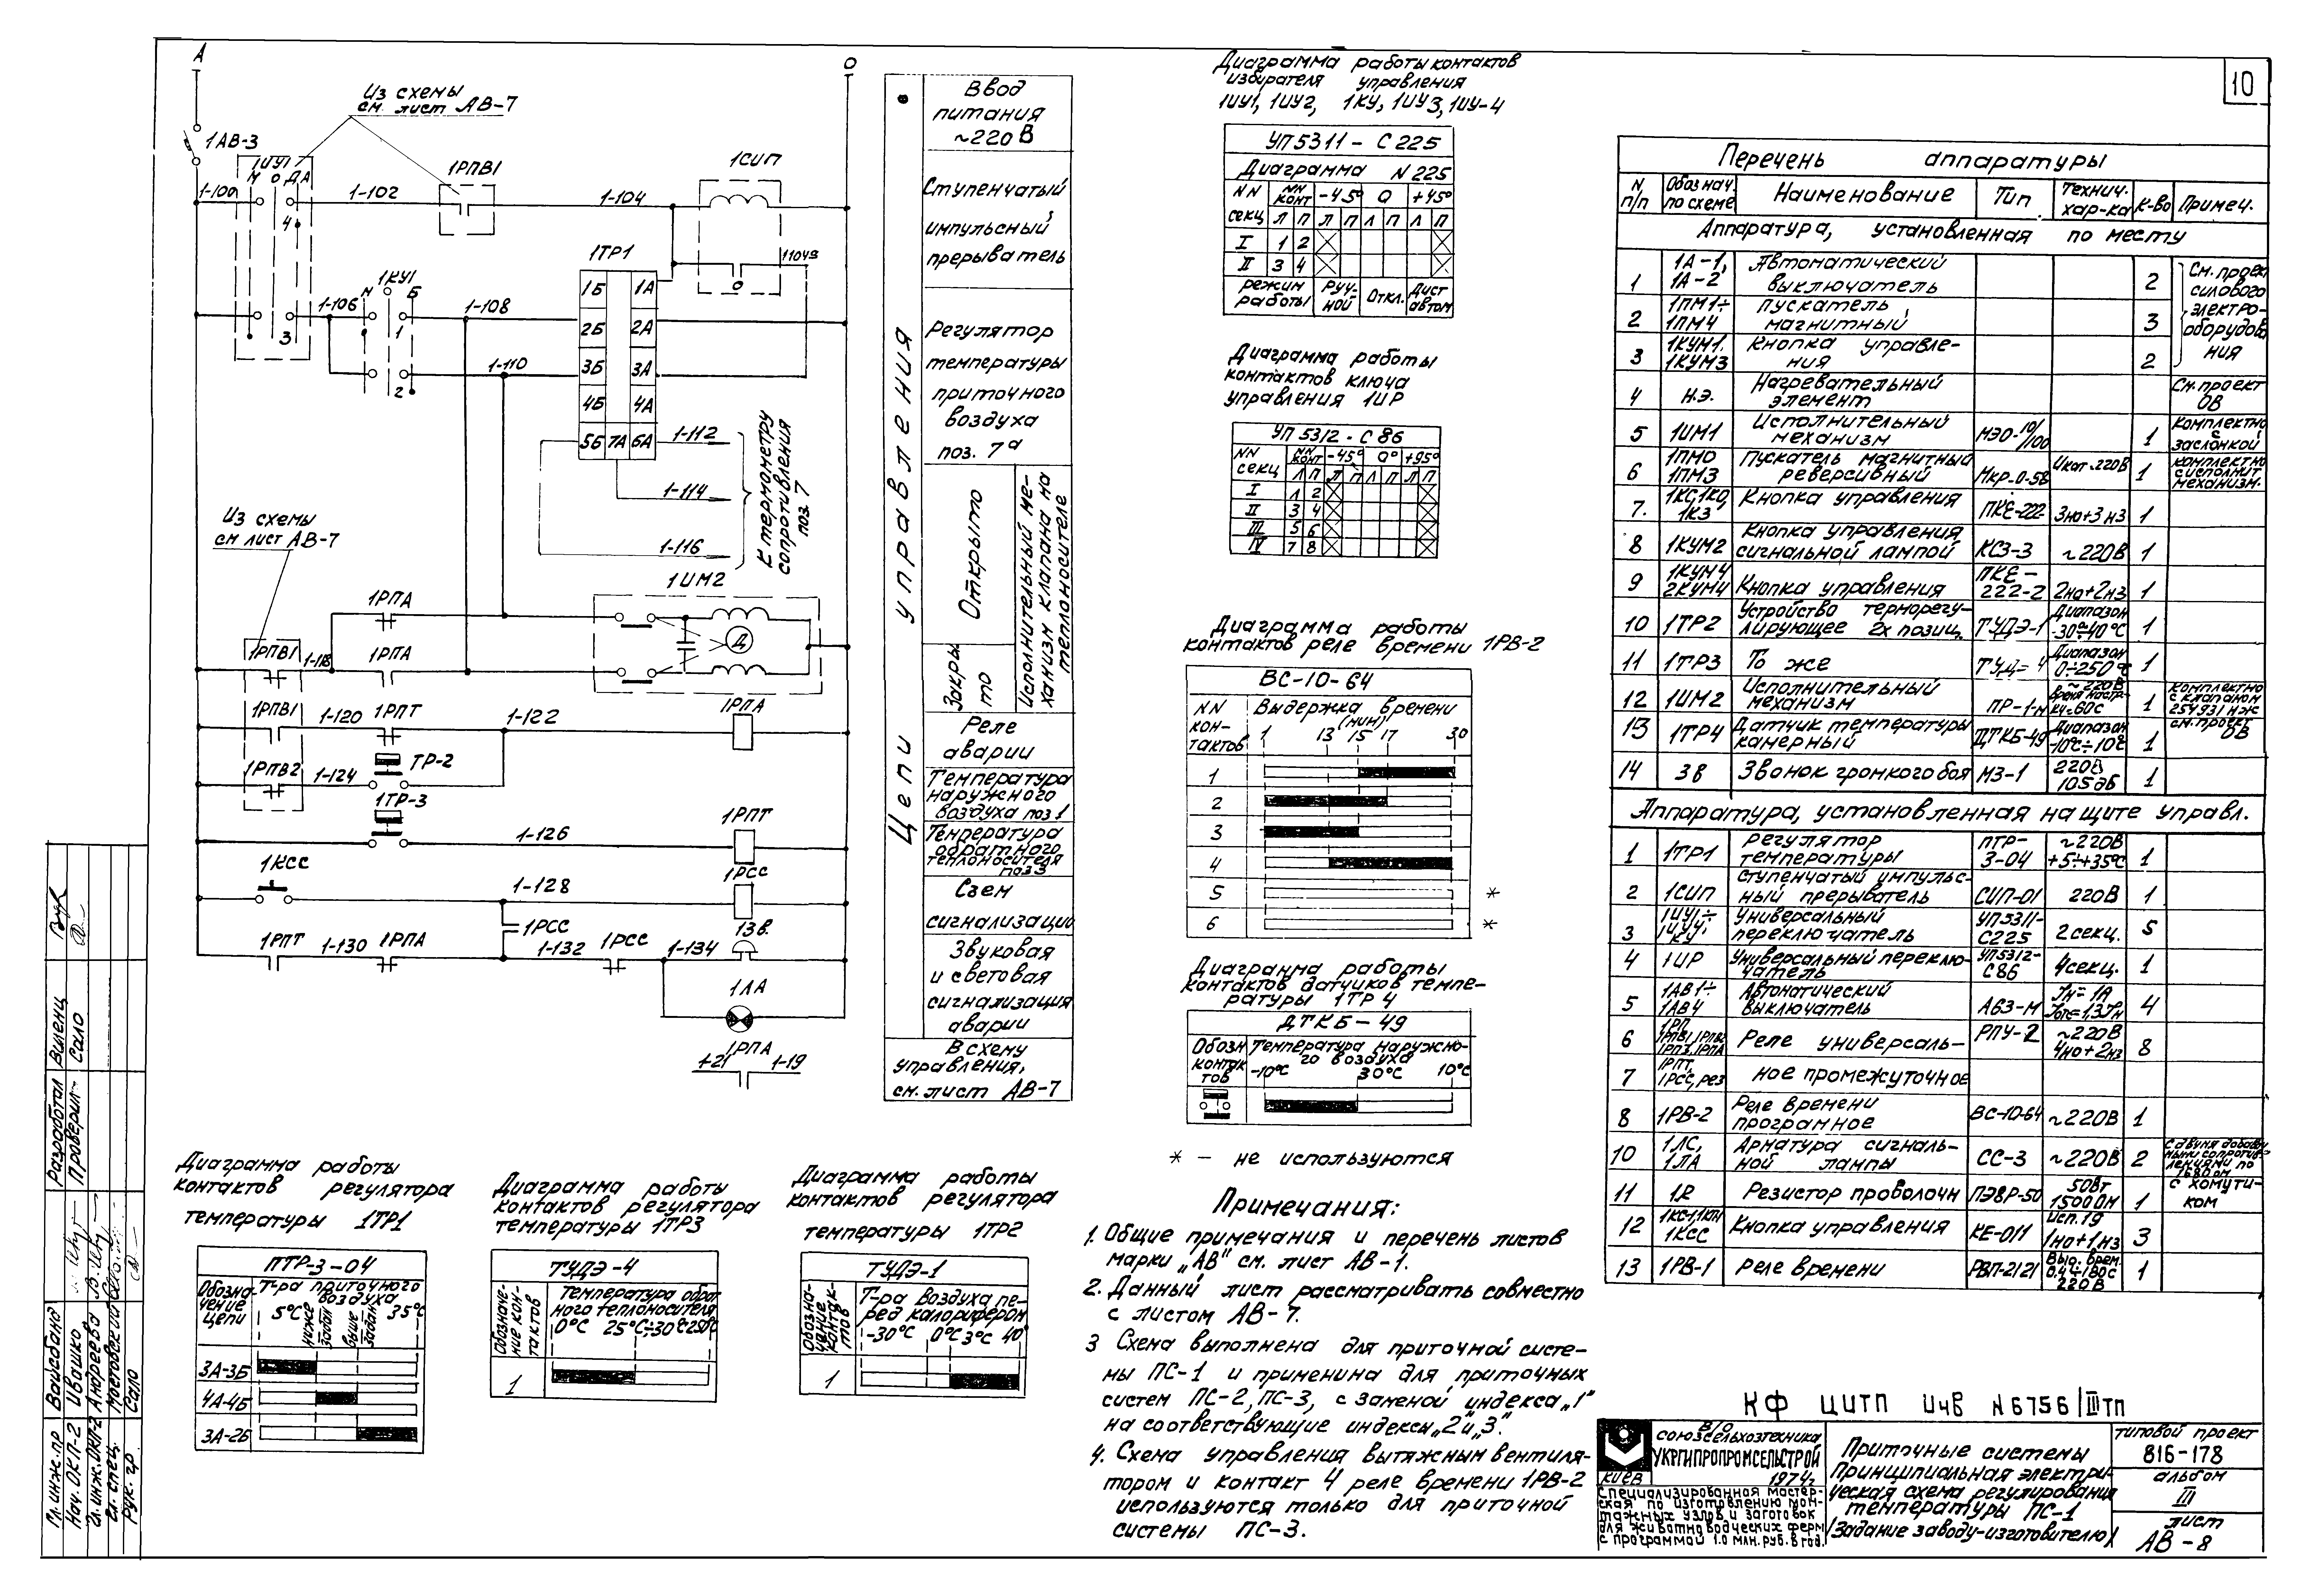 10
А
О
Из схемы
см. лист АВ-7
1АВ-3
1ИУ1
М О Д А
1-100
1-102
1РПВ1
1-104
1СИП
4
1104в
1ТР1
1КУ1
М О Б
1-106
1-108
1
3
1-110
2
1Б 1А
2Б 2А
3Б 3А
4Б 4А
5Б 7А 6А
1-112
1-114
1-116
К термометру
сопротивления
поз. 7
Из схемы
см лист АВ-7
1РПА
1ИМ2
Д
1РПВ1
1-118
1РПА
1РПВ1
1-120
1РПТ
1-122
1РПА
1РПВ2
1-124
ТР-2
1ТР-3
1-126
1РПТ
1КСС
1-128
1РСС
1РСС
1РПТ
1-130
1РПА
1-132
1РСС
1-134
1Зв.
1ЛА
1РПА
1-21
1-19
Цепи управления
Ввод
питания
~220В
Ступенчатый
импульсный
прерыватель
Регулятор
температуры
приточного
воздуха
поз. 7а
Открыто
Закры
то
Исполнительный ме-
ханизм клапана на
теплоносителе
Реле
аварии
Температура
наружного
воздуха поз 1
Температура
обратного
теплоносителя
поз 3
Съем
сигнализации
Звуковая
и световая
сигнализация
аварии
В схему
управления,
см. лист АВ-7
Диаграмма работы контактов
избирателя управления
1ИУ1, 1ИУ2, 1КУ, 1ИУ3, 1ИУ-4
УП5311 - С 225
Диаграмма N 225
NN секц
NN конт
-45° О +45°
Л П Л П Л П Л П
I 1 2
II 3 4
режим работы
Руч-ной
Откл.
Дист автом
Диаграмма работы
контактов ключа
управления 1ИР
УП 5312 - С 86
NN секц
NN конт
-45° 0° +95°
Л П Л П Л П Л П
I 1 2
II 3 4
III 5 6
IV 7 8
Диаграмма работы
контактов реле времени 1РВ-2
ВС-10-64
NN кон-тактов
Выдержка времени
(мин)
1 13 15 17 30
1
2
3
4
5 *
6 *
Диаграмма работы
контактов датчиков темпе-
ратуры 1ТР4
ДТКБ-49
Обозн контак тов
Температура наружно-
го воздуха
-10°С 30°С 10°С
* - не используются
Примечания:
1. Общие примечания и перечень листов
марки „АВ" см. лист АВ-1.
2. Данный лист рассматривать совместно
с листом АВ-7.
3 Схема выполнена для приточной систе-
мы ПС-1 и применина для приточных
систем ПС-2, ПС-3, с заменой индекса „1"
на соответствующие индексы „2"и„3".
4. Схема управления вытяжным вентиля-
тором и контакт 4 реле времени 1РВ-2
используются только для приточной
системы ПС-3.
Диаграмма работы
контактов регулятора
температуры 1ТР1
ПТР-3-04
Обозна-чение цепи
Т-ра приточного
воздуха
5°С
ниже задан
выше задан
35°С
3А-3Б
4А-4Б
3А-2Б
Диаграмма работы
контактов регулятора
температуры 1ТР3
ТУДЭ-4
Обозначе-ние кон-тактов
Температура обрат
ного теплоносителя
0°С 25°С÷30°С 250°С
1
Диаграмма работы
контактов регулятора
температуры 1ТР2
ТУДЭ-1
Обозна-чение контак-тов
Т-ра воздуха пе-
ред калорифером
-30°С 0°С 3°С 40°
1
Перечень аппаратуры
N п/п
Обознач. по схеме
Наименование
Тип
Технич. хар-ка
К-во
Примеч.
Аппаратура, установленная по месту
1 1А-1, 1А-2 Автоматический выключатель 2
См. проект силового электро-оборудова ния
2 1ПМ1÷ 1ПМ4 Пускатель магнитный 3
3 1КУМ1. 1КУМ3 Кнопка управле-ния 2
4 Н.Э. Нагревательный элемент См. проект ОВ
5 1ИМ1 Исполнительный механизм МЭО-10/100 1 Комплектно с заслонкой
6 1ПМО 1ПМЗ Пускатель магнитный реверсивный Мкр-0-58 Uкат.220В 1 комплектно с исполнит механизм.
7. 1КС,1КО, 1КЗ Кнопка управления ПКЕ-222 3но+3нз 1
8 1КУМ2 Кнопка управления сигнальной лампой КСЗ-3 ~220В 1
9 1КУМ4 2КУМ4 Кнопка управления ПКЕ-222-2 2но+2нз 1
10 1ТР2 Устройство терморегу-лирующее 2х позиц. ТУДЭ-1 Диапазон -30÷40°С 1
11 1ТР3 То же ТУД=4 Диапазон 0÷250°С 1
12 1ИМ2 Исполнительный механизм ПР-1-М ~220В время настр- 60с 1 комплектно с клапаном 25ч931нж см. проект ОВ
13 1ТР4 Датчик температуры камерный ДТКБ-49 Диапазон -10°С÷10°С 1
14 ЗВ Звонок громкого боя МЗ-1 220В 105дБ 1
Аппаратура, установленная на щите управл.
1 1ТР1 регулятор температуры ПТР-3-04 ~220В +5÷+35°С 1
2 1СИП ступенчатый импульс-ный прерыватель СИП-01 220В 1
3 1ИУ1÷ 1ИУ4; 1КУ Универсальный переключатель УП5311-С225 2секц. 5
4 1ИР Универсальный переклю-чатель УП5312-С86 4секц. 1
5 1АВ1÷ 1АВ4 Автоматический выключатель А63-М Iн=1А Iотс=1,3Iн 4
6 1РП, 1РПВ1, 1РПВ2 1РПЗ, 1РПА Реле универсаль- РПУ-2 ~220В 4но+2нз 8
7 1РПТ, 1РСС, рез ное промежуточное
8 1РВ-2 Реле времени програмное ВС-10-64 ~220В 1
10 1ЛС, 1ЛА Арматура сигналь-ной лампы СС-3 ~220В 2 С двумя добавоч ными сопротив-лениями по
11 1R Резистор проволочн ПЭВР-50 50Вт 1500Ом 1 с хомути-ком
12 1КС-1,1КП 1КСС Кнопка управления КЕ-011 исп.19 1но+1нз 3
13 1РВ-1 реле времени РВП-2121 Выд. врем. 0.4÷180с 220В 1
КФ ЦИТП Инв N 6756/III ТП
В/О
союзсельхозтехника
УКРГИПРОПРОМСЕЛЬСТРОЙ
Киев 1974г.
Специализированная мастер-
ская по изготовлению мон-
тажных узлов и заготовок
для животноводческих ферм
с программой 1.0 млн. руб. в год.
Приточные системы
Принципиальная электри-
ческая схема регулирования
температуры ПС-1
/Задание заводу-изготовителю/
типовой проект
816-178
альбом
III
лист
АВ-8
Разработал Виленц
Проверил Сало
Гл. инж. пр Вайсбанд
Нач. ОКП-2 Ивашко
Гл. инж. ОКП-2 Андреева
Гл. спец. Мостовский
Рук. гр. Сало